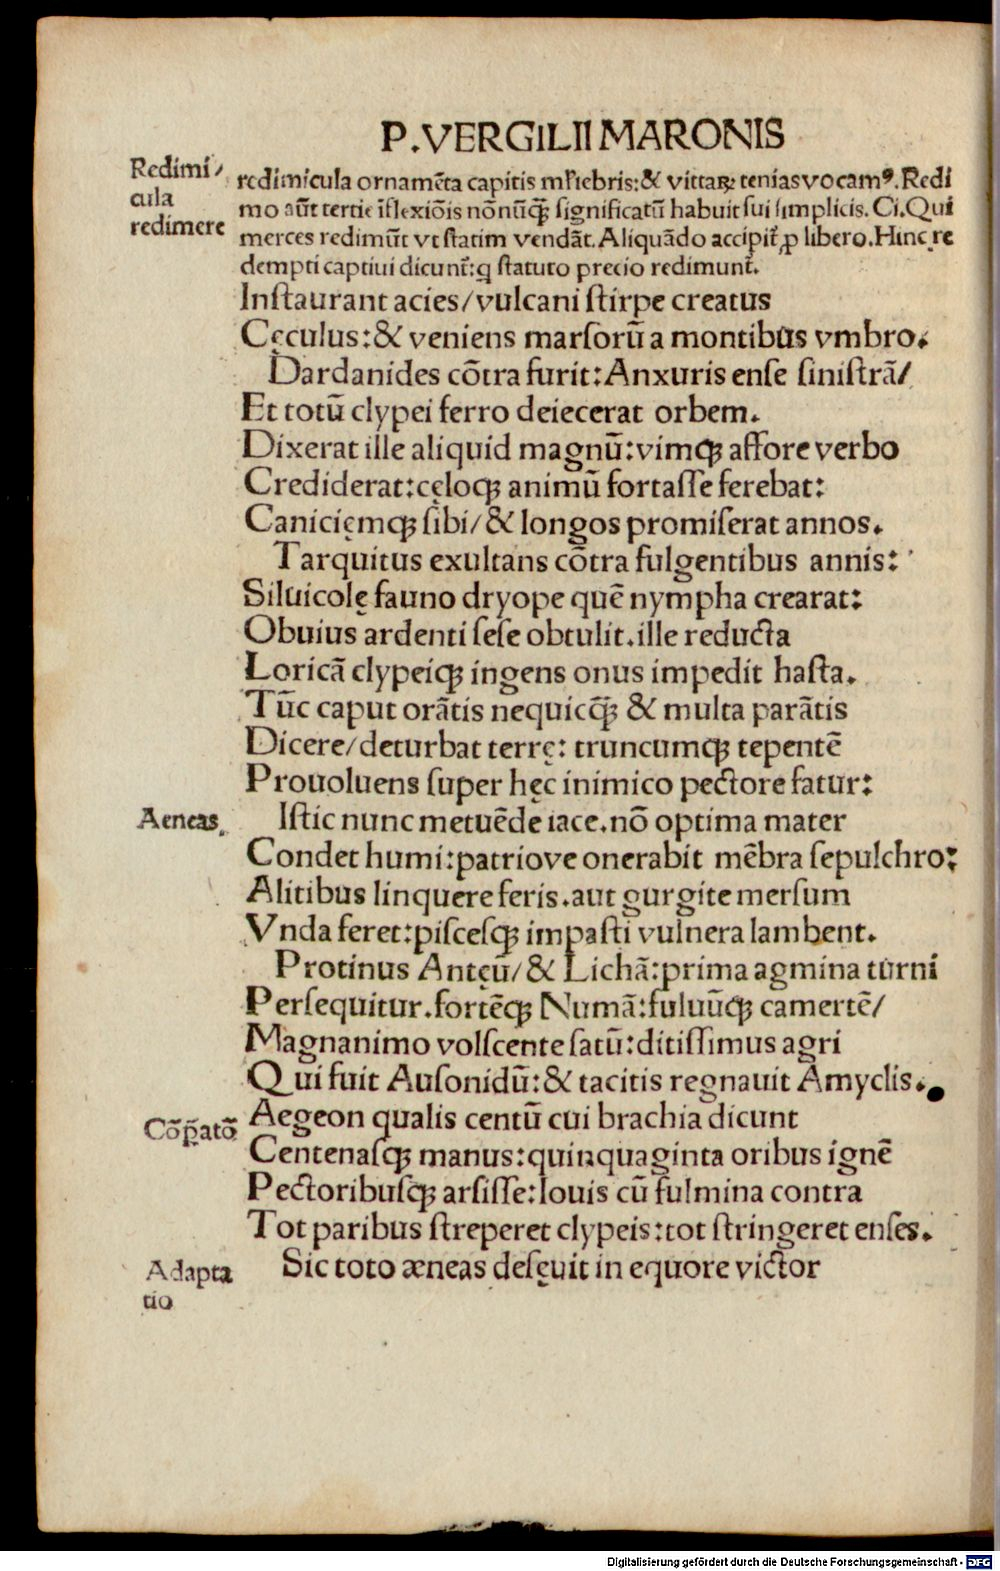 P.VERGILII MARONIS
Redimi/
cula
redimere
redimicula ornamēta capitis mr̄iebris:& vittaꝝ tenias vocamꝰ.Redi
mo aūt tertie īflexiōis nōnūꝗ̄ significatū habuit sui simplicis. Ci. Qui
merces redimūt vt statim vendāt. Aliquādo accipit̄ ꝓ libero. Hinc re
dempti captiui dicunt̄:ꝗ statuto precio redimunt̄.
Instaurant acies/vulcani stirpe creatus
Cęculus:& veniens marsorū a montibus vmbro.
Dardanides cōtra furit:Anxuris ense sinistrā/
Et totū clypei ferro deiecerat orbem.
Dixerat ille aliquid magnū:vimqꝫ affore verbo
Crediderat:cęloqꝫ animū fortasse ferebat:
Caniciemqꝫ sibi/& longos promiserat annos.
Tarquitus exultans cōtra fulgentibus annis:
Siluicolę fauno dryope quē nympha crearat:
Obuius ardenti sese obtulit.ille reducta
Loricā clypeiqꝫ ingens onus impedit hasta.
Tūc caput orātis nequicꝗ̄ & multa parātis
Dicere/deturbat terrę: truncumqꝫ tepentē
Prouoluens super hęc inimico pectore fatur:
Aeneas.
Istic nunc metuēde iace.nō optima mater
Condet humi:patriove onerabit mēbra sepulchro:
Alitibus linquere feris.aut gurgite mersum
Vnda feret:piscesqꝫ impasti vulnera lambent.
Protinus Antęū/& Lichā:prima agmina turni
Persequitur.fortēqꝫ Numā:fuluūqꝫ camertē/
Magnanimo volscente satū:ditissimus agri
Qui fuit Ausonidū:& tacitis regnauit Amyclis.
Aegeon qualis centū cui brachia dicunt
Cōꝑatō
Centenasqꝫ manus:quinquaginta oribus ignē
Pectoribusqꝫ arsisse:Iouis cū fulmina contra
Tot paribus streperet clypeis:tot stringeret enses.
Adapta
tio
Sic toto æneas desęuit in equore victor
Digitalisierung gefördert durch die Deutsche Forschungsgemeinschaft - DFG